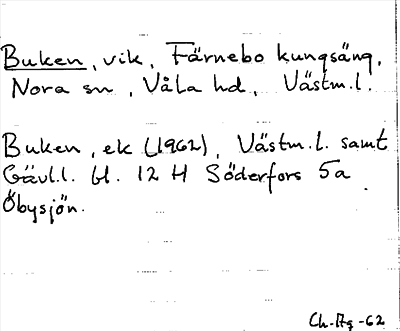 Buken, vik, Färnebo kungsäng,
Nora sn, Våla hd, Västm.l.
Buken, ek (1962), Västm.l. samt
Gävl.l. bl. 12 H Söderfors 5a
Öbysjön.
-62